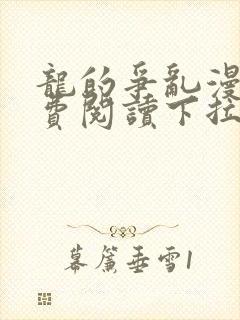 龍的爭亂漫
費閱讀下拉
幕簾垂雪1